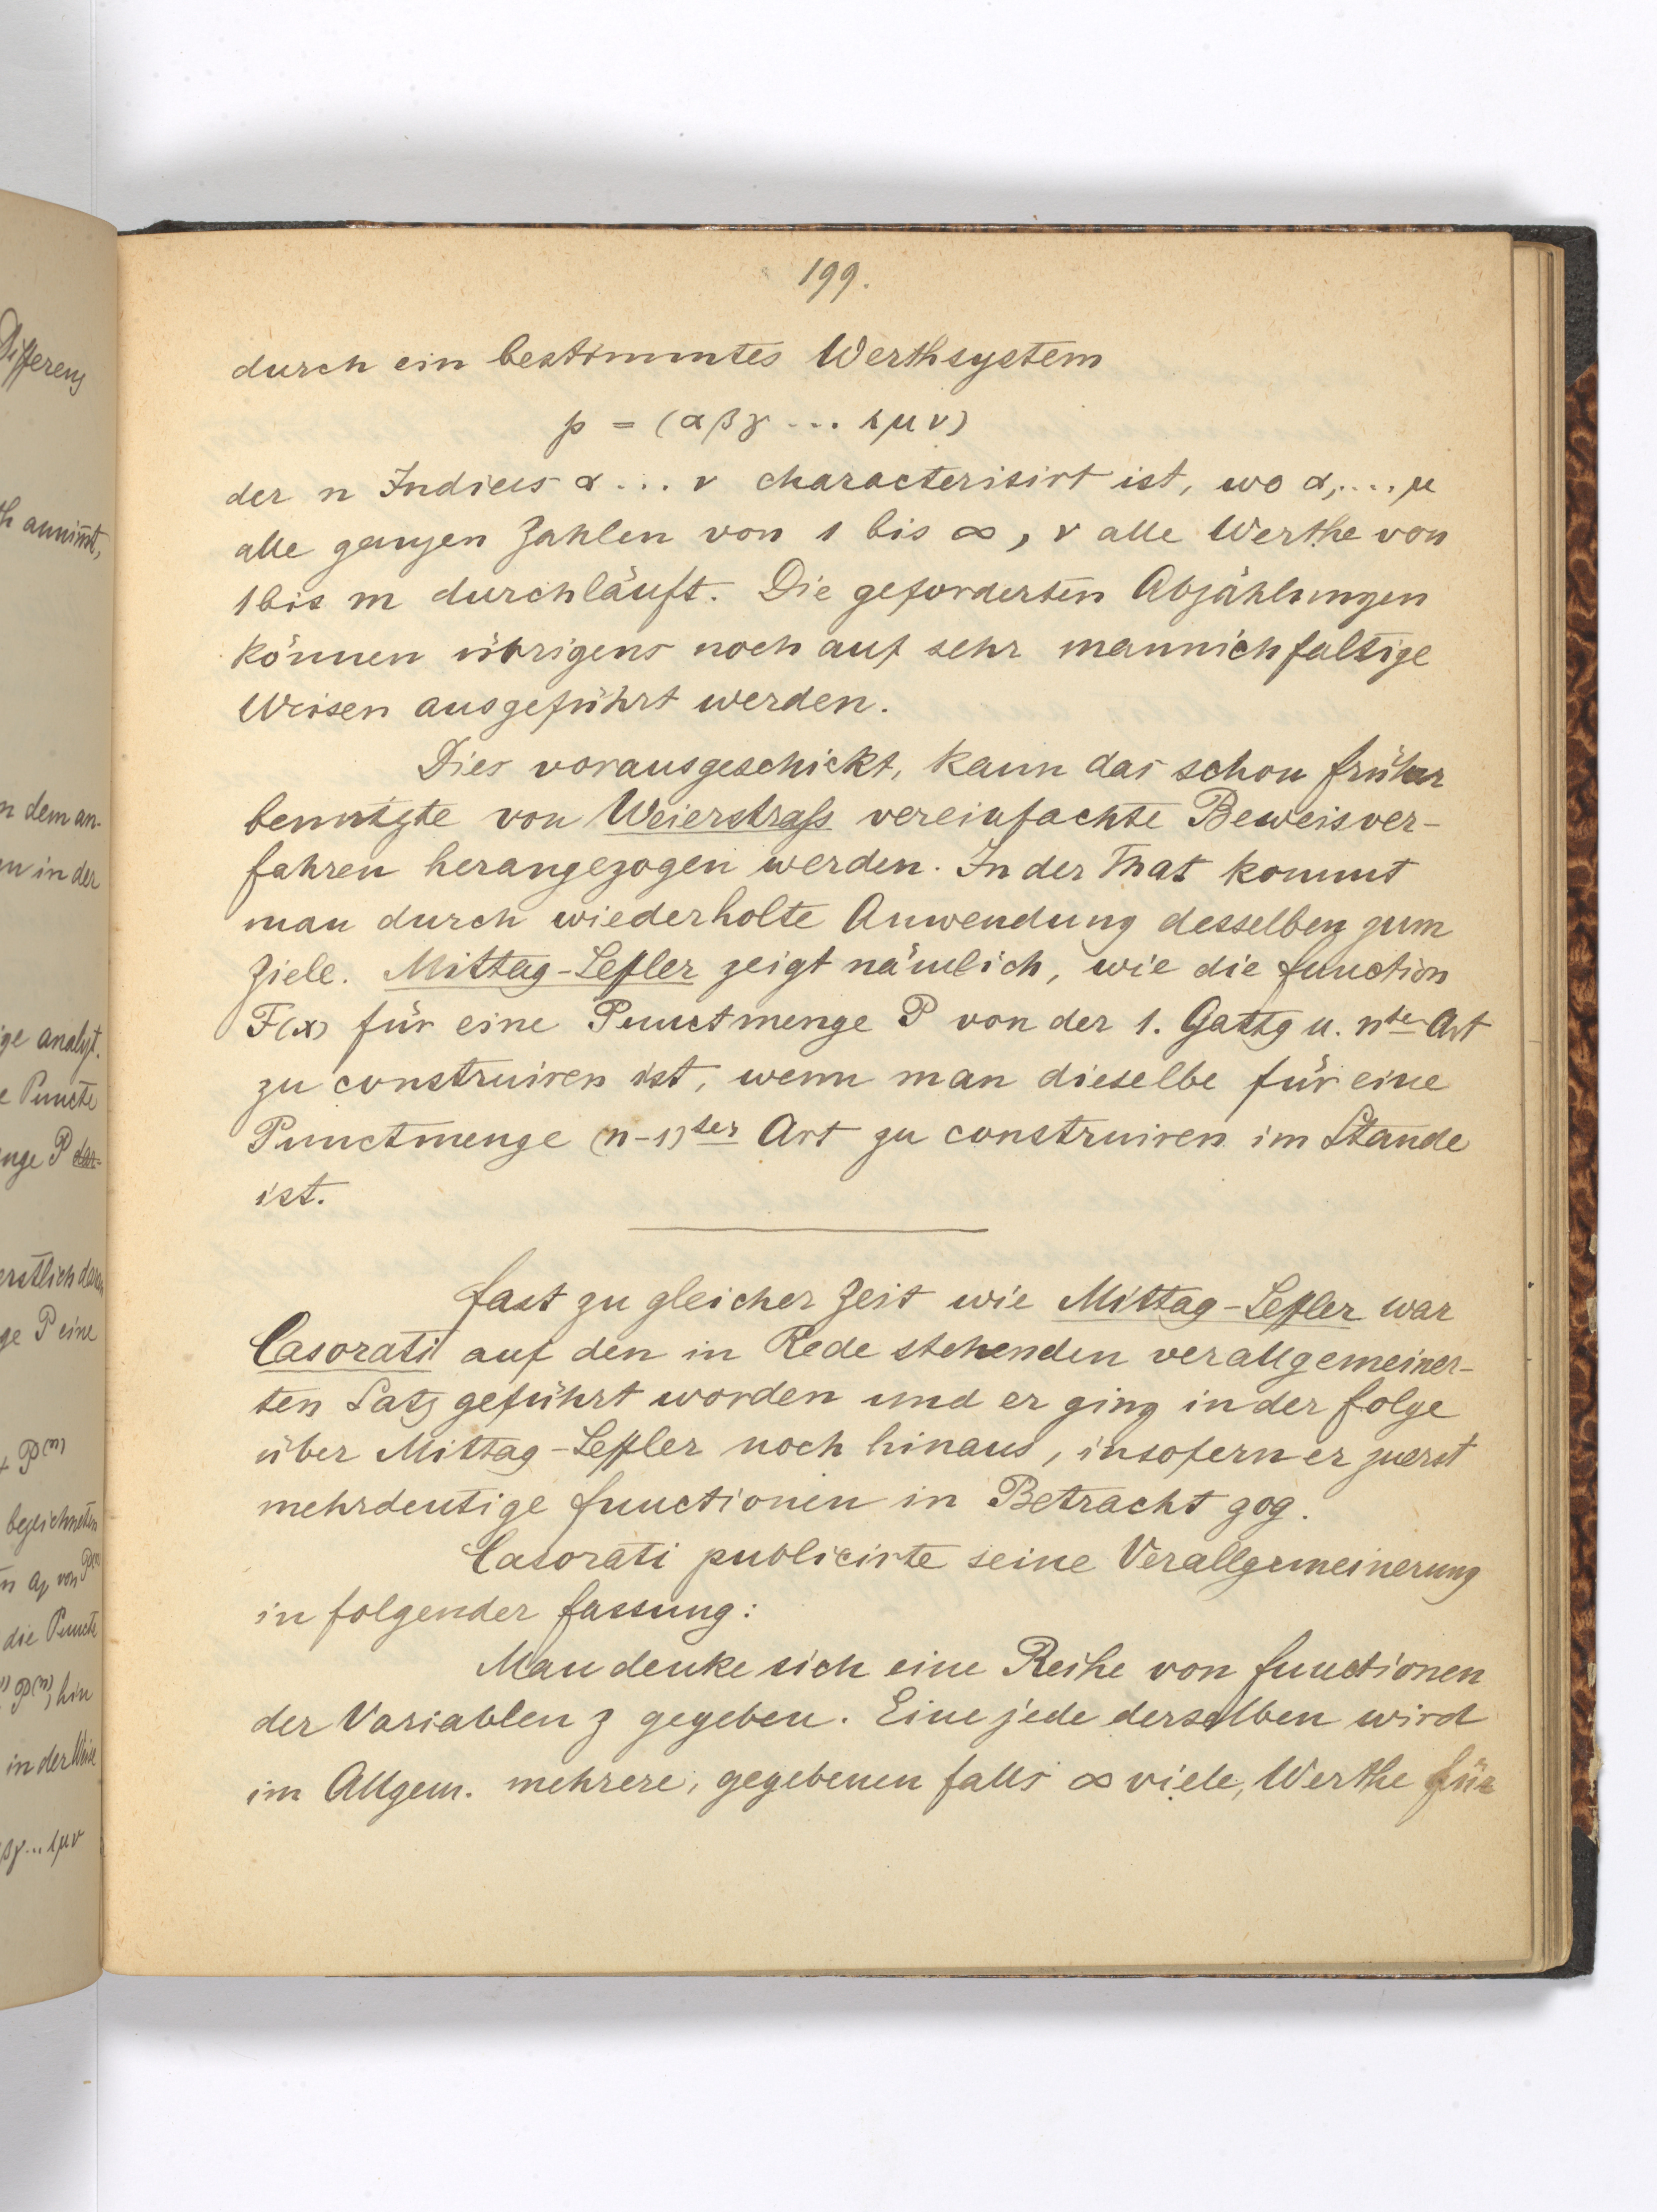 Differenz
th annim̄t,
n dem an-
en in der
ige analyt.
e Puncte
nge P
erstlich
ge P eine
+ P(n)
bezeichneten
die Puncte
P(n), hin
in der Weise
βγ...ιμν
199.
durch ein bestimmtes Werthsystem
p = (αβγ ... ιμν)
der n Indices α ... ν characterisirt ist, wo α,....μ
alle ganzen Zahlen von 1 bis ∞, ν alle Werthe von
1 bis m durchläuft. Die geforderten Abzählungen
können übrigens noch auf sehr mannichfaltige
Weisen ausgeführt werden.
Dies vorausgeschickt, kann das schon früher
benutzte von Weierstraß vereinfachte Beweisver-
fahren herangezogen werden. In der That kommt
man durch wiederholte Anwendung desselben zum
Ziele. Mittag-Lefler zeigt nämlich, wie die Function
F(x) für eine Punctmenge P von der 1. Gattg u. nter Art
zu construiren ist, wenn man dieselbe für eine
Punctmenge (n-1)ter Art zu construiren im Stande
ist.
Fast zu gleicher Zeit wie Mittag-Leffler war
Casorati auf den in Rede stehenden verallgemeiner-
ten Satz geführt worden und er ging in der Folge
über Mittag-Leffler noch hinaus, insofern er zuerst
mehrdeutige Functionen in Betracht zog.
Casorati publicirte seine Verallgemeinerung
in folgender Fassung:
Man denke sich eine Reihe von Functionen
der Variablen z gegeben. Eine jede derselben wird
im Allgem. mehrere, gegebenen falls ∞ viele, Werthe für